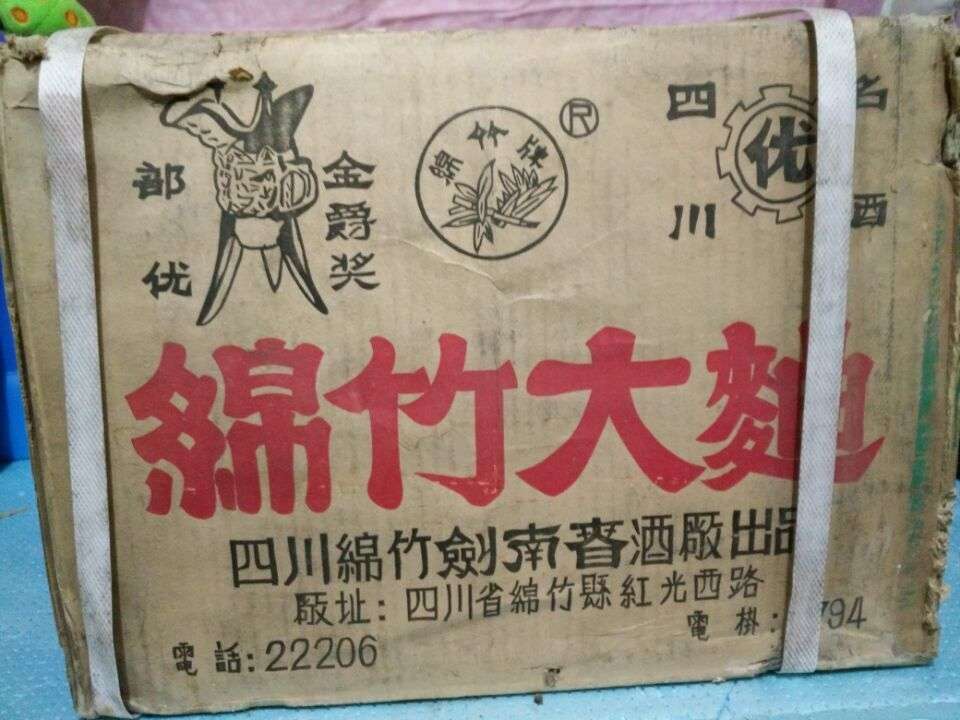 部优
金爵奖
綿竹牌
R
四川
优
名酒
綿竹大麯
四川綿竹劍南春酒廠出品
厰址：四川省綿竹縣紅光西路
電話：22206
電掛：794